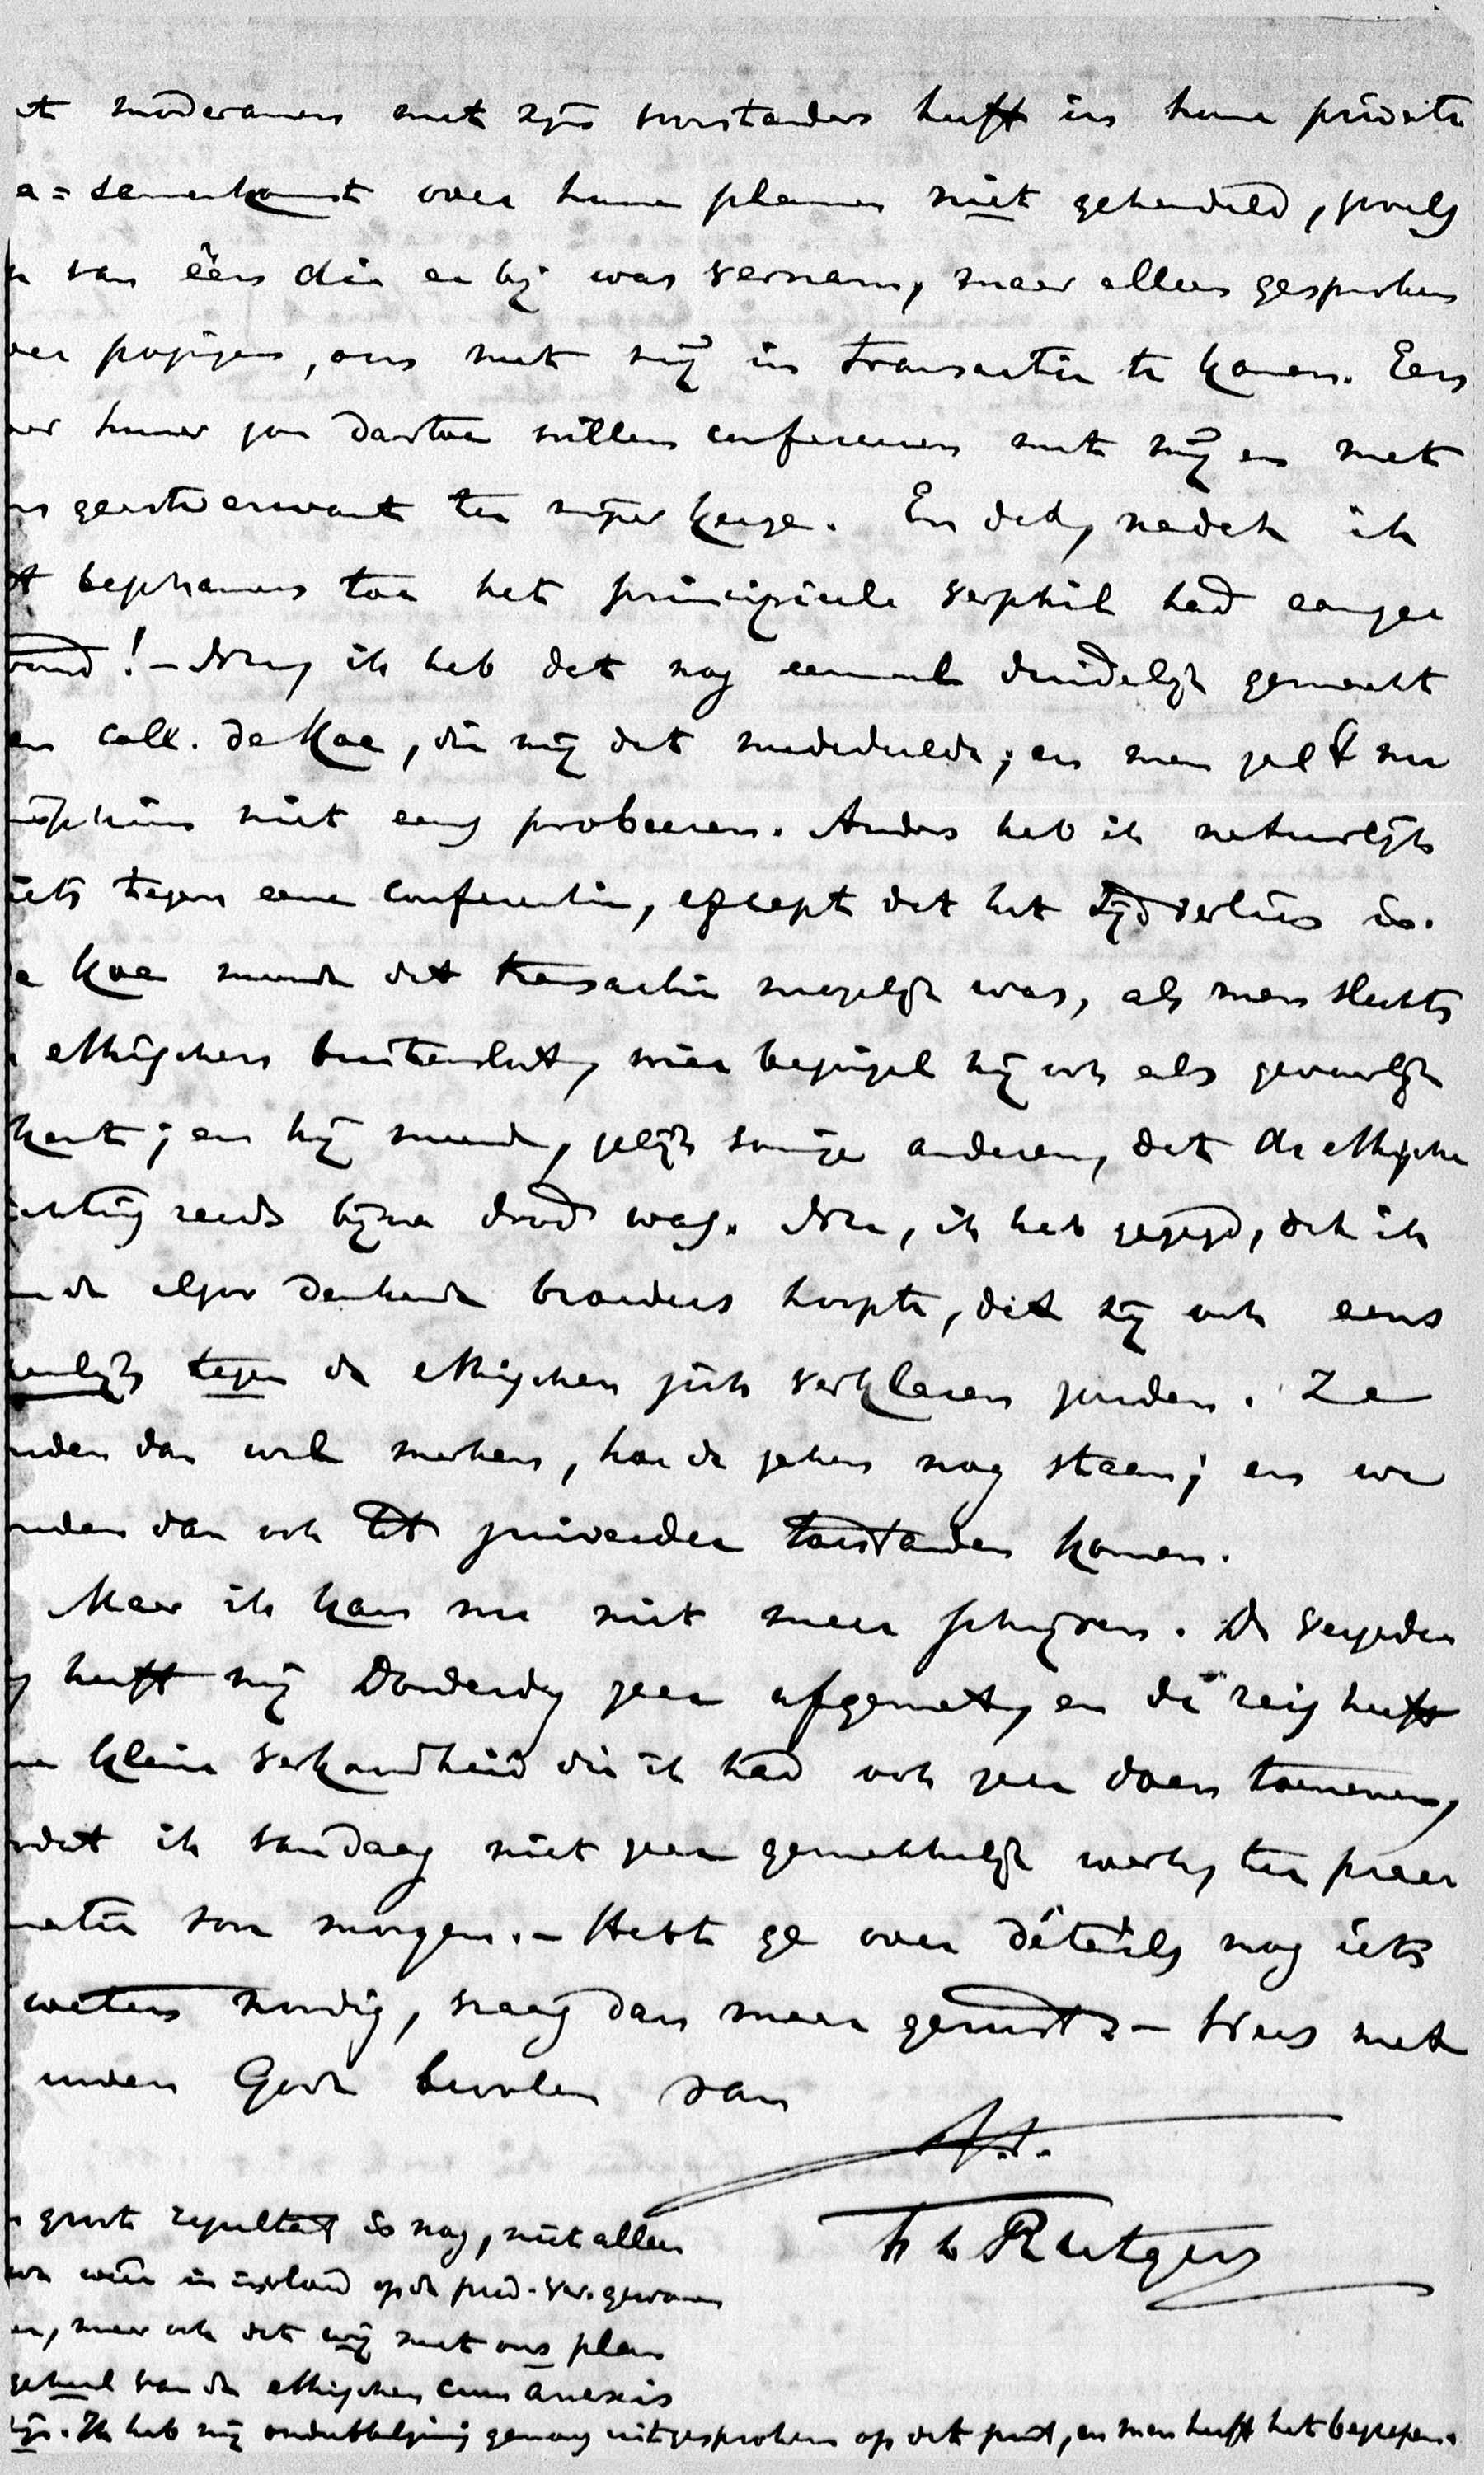 et moderamen met zijn voorstanders heeft in hunne private
a = samenkomst over hunne plannen niet gehandeld, zooals
k van één die er bij was vernam, maar alleen gesproken
ver pogingen, om met mij in transactie te komen. Een
ver hunner zou daartoe willen confereeren met mij en met
een geestverwant ter mijner keuze. En dat, nadat ik
et bijzonder toe het principieele verschil had aange
toond! – Nu, ik heb dat nog eenmaal duidelijk gemaakt
en coll. de Koe, die mij dat mededeelde; en men zal 't nu
misschien niet eens probeeren. Anders heb ik natuurlijk
iets tegen eene conferentie, except dat het tijdverlies is.
e Koe meende dat transactie mogelijk was, als men slechts
ethischen buitensloot, wier beginsel hij ook als gevaarlijk
kent; en hij meende, gelijk sommige anderen, dat de ethische
richting reeds bijna dood was. Nu, ik heb gezegd, dat ik
n de alzoo denkende broeders hoopte, dat zij ook eens
openlijk tegen de ethischen zich verklaren zouden. Ze
ouden dan wel merken, hoe de zaken nog staan; en we
ouden dan ook tot zuiverder toestanden komen.
Maar ik kan nu niet meer schrijven. De vergade
g heeft mij Donderdag zeer afgemat, en de reis heeft
ne kleine verkoudheid die ik had ook zeer doen toenemen,
odat ik vandaag niet zeer gemakkelijk werk, ter praepa
ratie voor morgen. – Hebt ge over détails nog iets
weten noodig, vraag dan maar gerust. – Wees met
uwen Gode bevolen van
t.t.
F L Rutgers
n groot resultaat is nog, niet alleen
wij met ons plan
geheel van de ethischen cum annexis
zijn. Ik heb mij ondubbelzinnig genoeg uitgesproken op dat punt, en men heeft het begrepen.